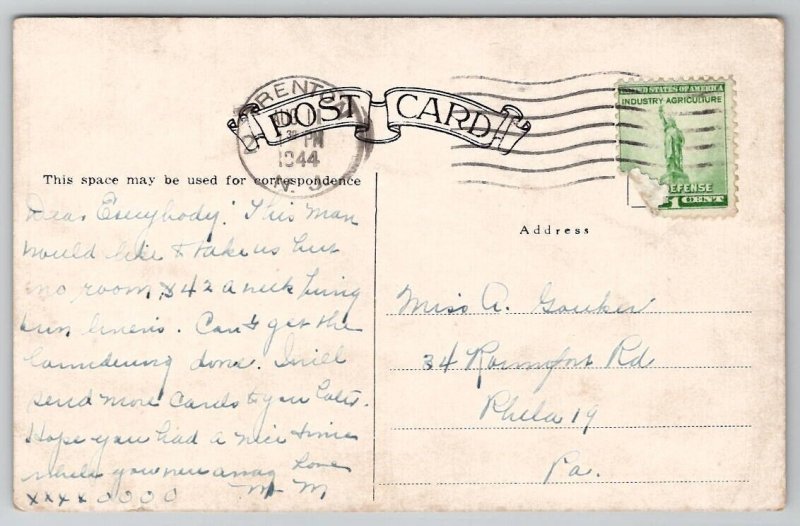 TRENTON
PM
1944
N. J.
POST CARD
UNITED STATES OF AMERICA
INDUSTRY AGRICULTURE
DEFENSE
1 CENT
This space may be used for correspondence
Dear Everybody! This man
would like to take us but
no room, $42 a week bring
own linens. Can't get the
laundering done. I will
send more cards to you later.
Hope you had a nice time
while you were away Love
xxxx0000 M M
Address
Miss A.
34 Rd
Phila 19
Pa.